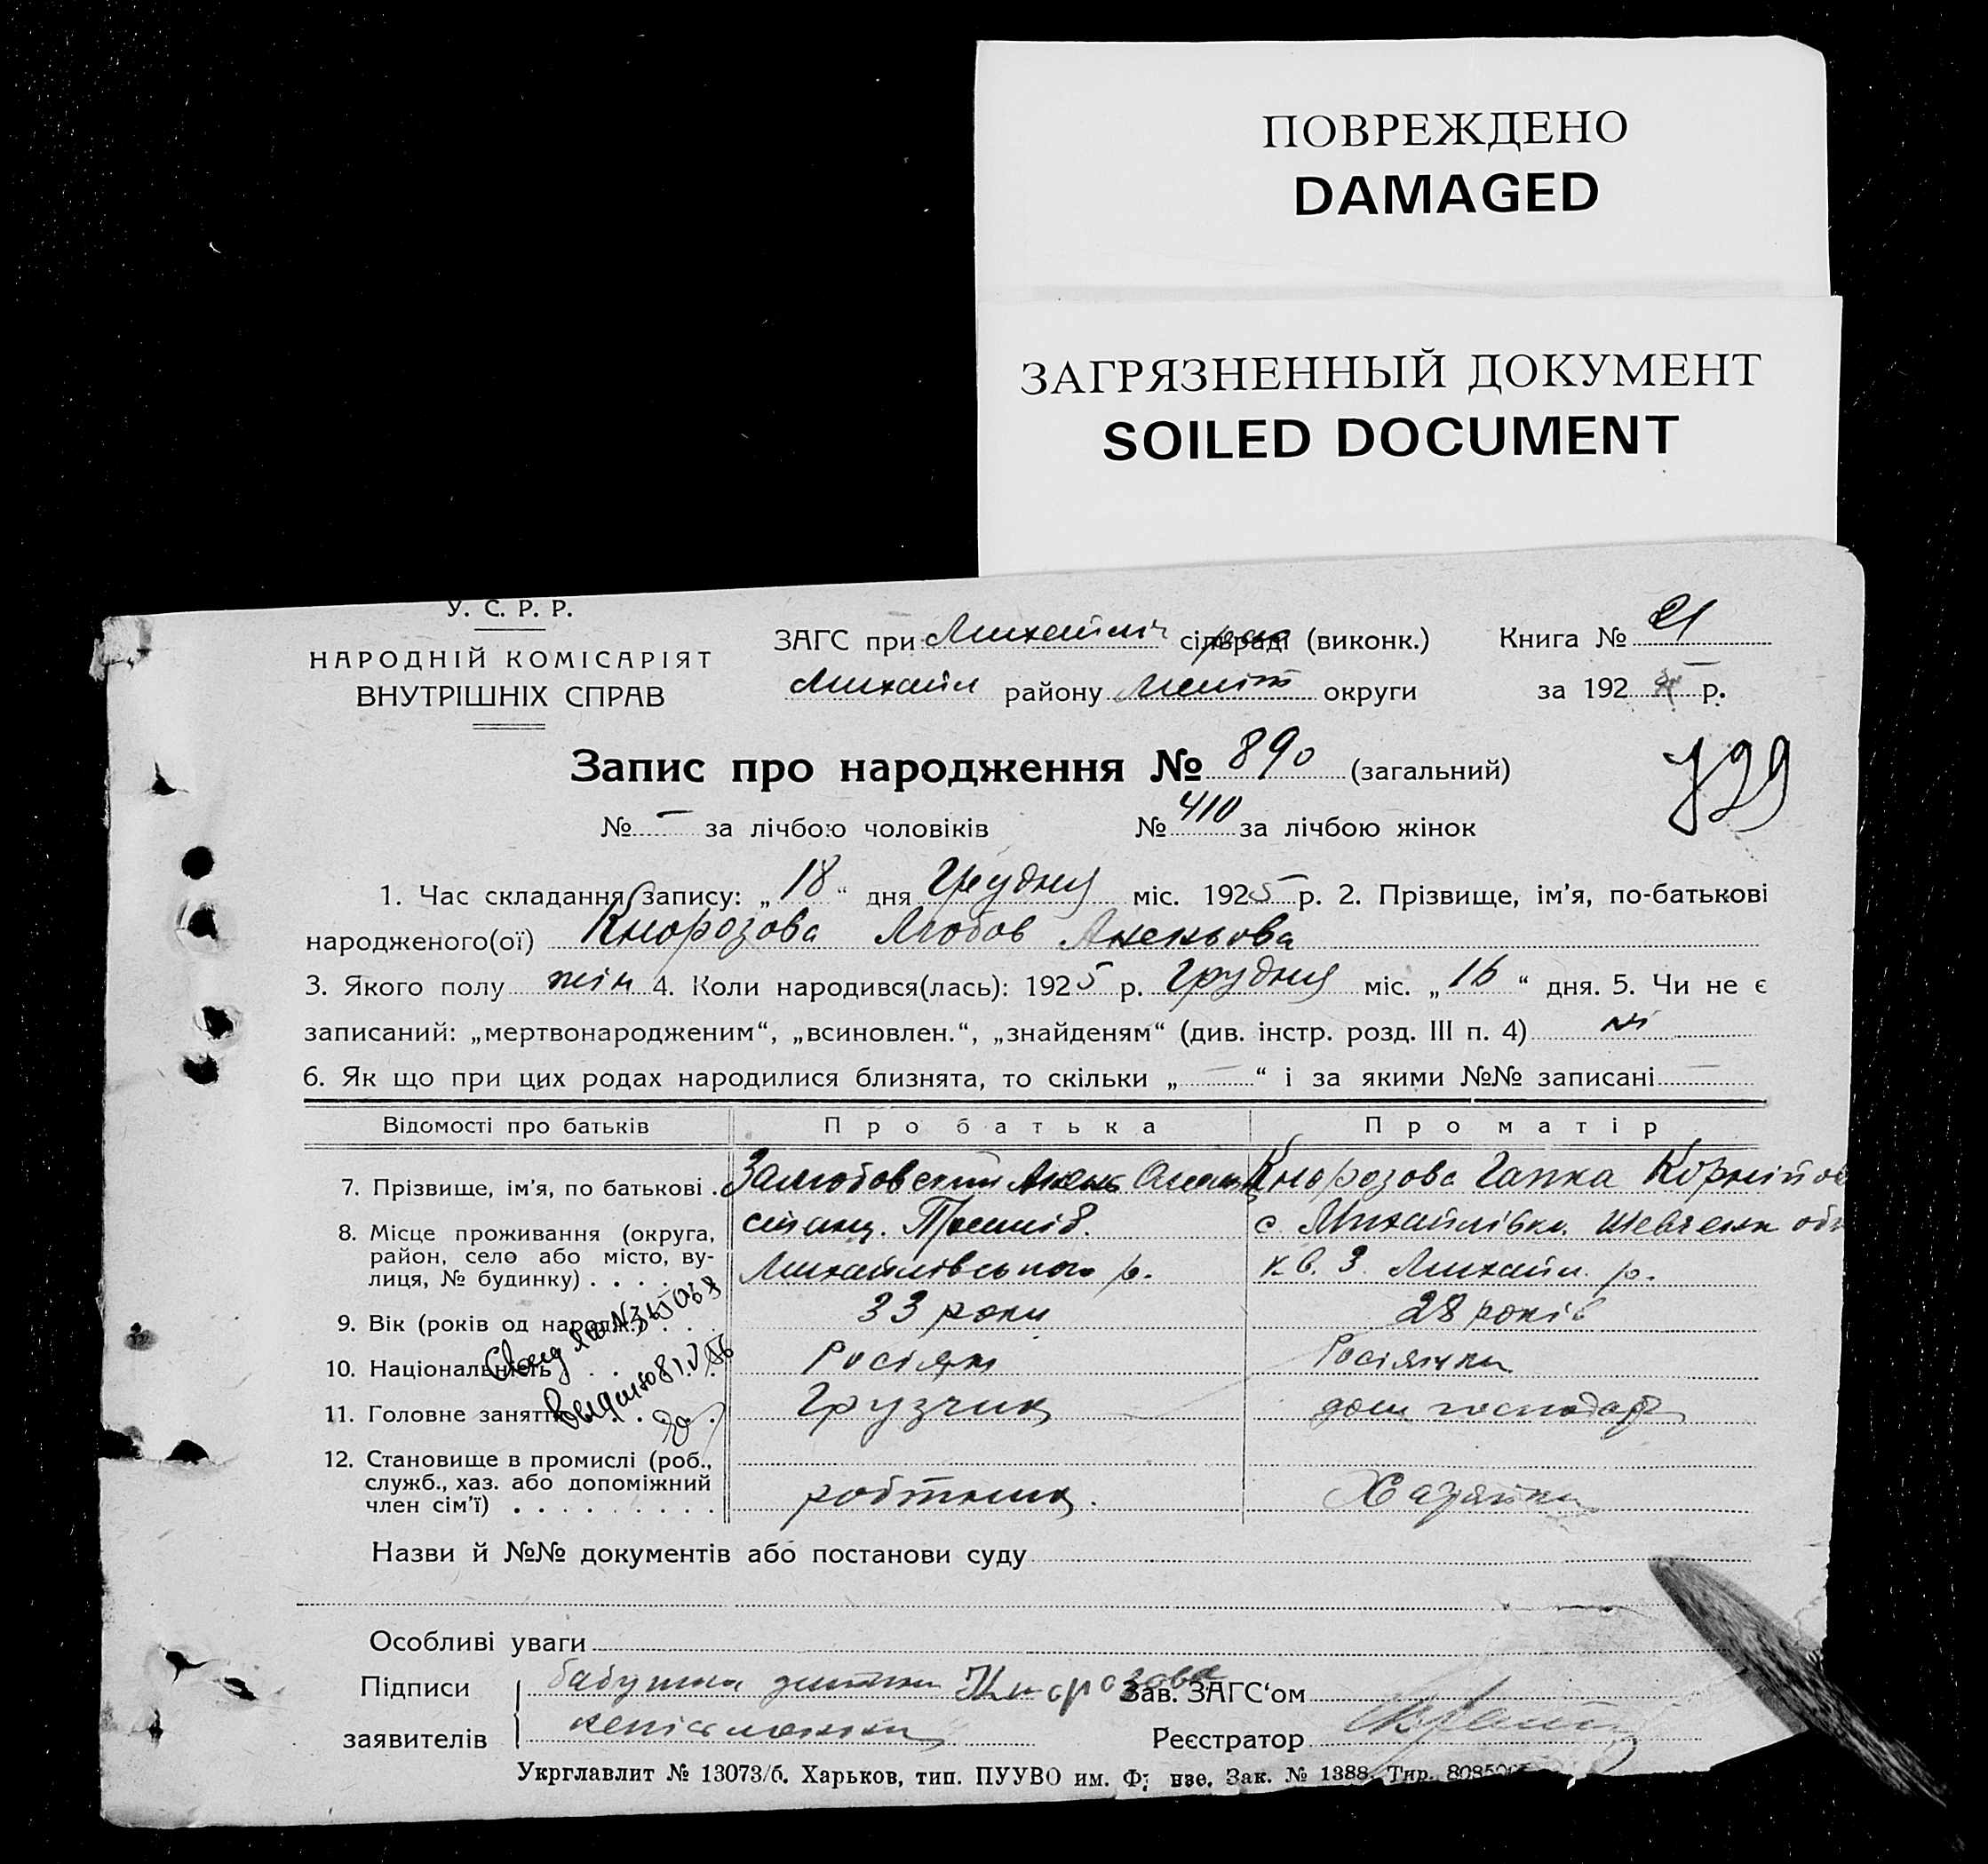 ПОВРЕЖДЕНО
DAMAGED
ЗАГРЯЗНЕННЫЙ ДОКУМЕНТ
SOILED DOCUMENT
У. С. Р. Р.
НАРОДНІЙ КОМІСАРІЯТ
ВНУТРІШНІХ СПРАВ
ЗАГС при Михайлів сільраді (виконк.)
Книга № 21
Михайл району Меліт округи
за 192 р.
Запис про народження № 890 (загальний)
799
№ — за лічбою чоловіків № 410 за лічбою жінок
1. Час складання запису: „18“ дня Грудня міс. 1925 р. 2. Прізвище, ім'я, по-батькові
народженого(ої) Кнорозова Любов Ананьова
3. Якого полу жін 4. Коли народився(лась): 1925 р. Грудня міс. „16“ дня. 5. Чи не є
записаний: „мертвонародженим“, „всиновлен.“, „знайденям“ (див. інстр. розд. III п. 4) ні
6. Як що при цих родах народилися близнята, то скільки „—“ і за якими №№ записані —
Відомості про батьків Про батька Про матір
7. Прізвище, ім'я, по батькові . Залюбовский Кнорозова Гапка Корнійов
8. Місце проживання (округа, район, село або місто, вулиця, № будинку) . . . .
станц. Пришиб. с. Михайлівка. Шевченк
Михайлівського р. кв. 3 Михайл. р.
9. Вік (років од народж.) . . . 33 роки 28 років
10. Національність . . . . Росіян Росіянка
11. Головне заняття . . . . Грузчик дом господар
12. Становище в промислі (роб., служб., хаз. або допоміжний член сім'ї) . . . . . . . . .
робітник. Хазяйка
Назви й №№ документів або постанови суду
Особливі уваги
Підписи бабушка дитини Кнорозова Зав. ЗАГС‘ом
заявителів неписьменна Реєстратор
Укрглавлит № 13073/б. Харьков, тип. ПУУВО им. Ф; нзе. Зак. № 1388. Тир. 80850